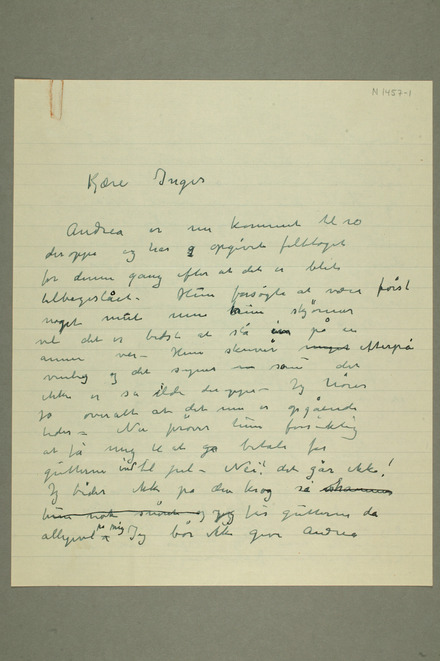 N 1457-1
Kjære Inger
Andrea er nu kommet til ro
deroppe og har opgivet felttoget
for denne gang efter at det er blit
tilbageslået. Hun forsøgte at være først
noget men skjønner
vel det er bedst at slå på en
annen Hun skriver meget efterpå
venlig og det synes som det
ikke er så ilde deroppe. Jeg hører
jo overalt at det nu er opgående
tider. Nu prøver hun forsiktig
at få mig til at betale for
gutterne indtil jul. Nei! det går ikke!
Jeg bider ikke på den krog så
hun nok og jeg guttene da
allikevel mig Jeg bør ikke give Andrea